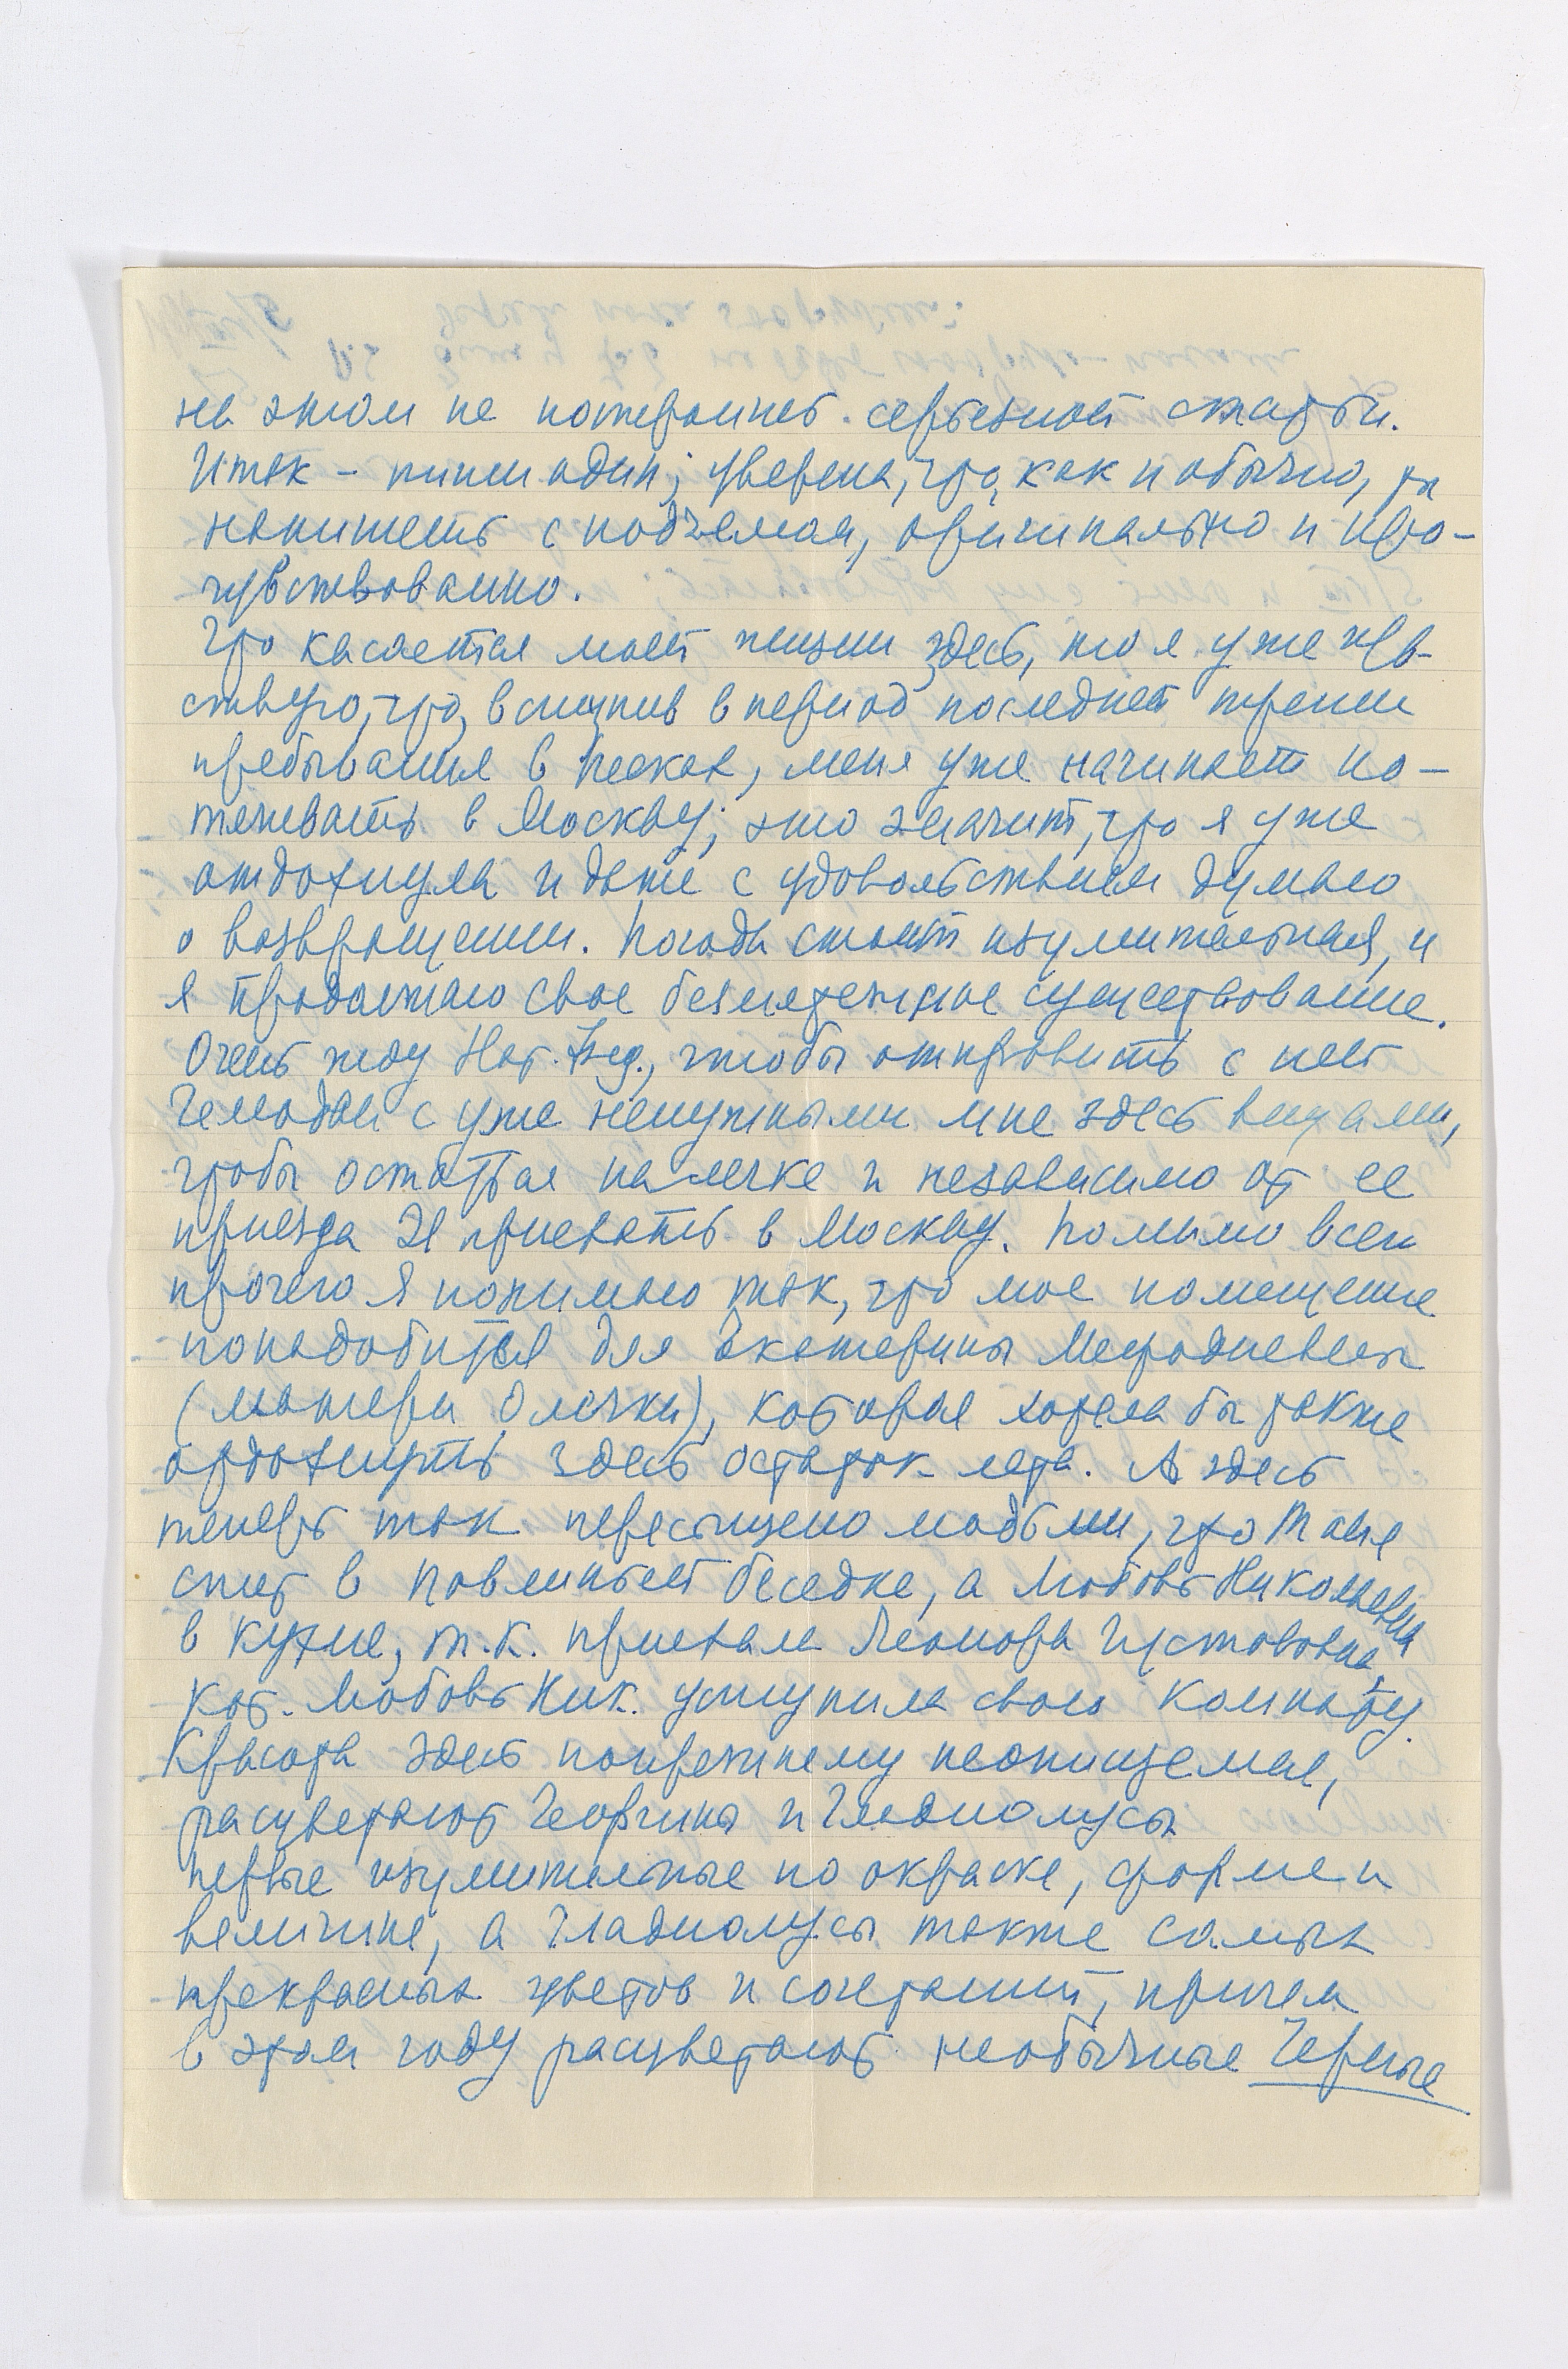 на этом не потеряет серьезной статьи.
Итак – пиши один; уверена, что, как и обычно, ты
напишешь с подъемом, оригинально и про-
чувствованно.
Что касается моей жизни здесь, то я уже чув-
ствую, что, вступив в период последней трети
пребывания в Песках, меня уже начинает по-
тягивать в Москву; это значит, что я уже
отдохнула и даже с удовольствием думаю
о возвращении. Погода стоит изумительная, и
я продолжаю свое безмятежное существование.
Очень жду Нат. Фед., чтобы отправить с ней
чемодан с уже ненужными мне здесь вещами,
чтобы остаться налегке и независимо от ее
приезда приехать в Москву. Помимо всего
прочего я понимаю так, что мое помещение
понадобится для Екатерины Мефодиевны
(матери Олечки), которая хотела бы также
отдохнуть здесь остаток лета. А здесь
теперь так пересыщено людьми, что Таня
спит в павлиньей беседке, а Любовь Николаевна
в кухне, т.к. приехала Леонора Густавовна,
кот. Любовь Ник. уступила свою комнату.
Красота здесь попрежнему неописуемая,
расцветают Георгины и Гладиолусы
первые изумительные по окраске, форме и
величине, а гладиолусы также самых
прекрасных цветов и сочетаний, причем
в этом году расцветают необычные Черные